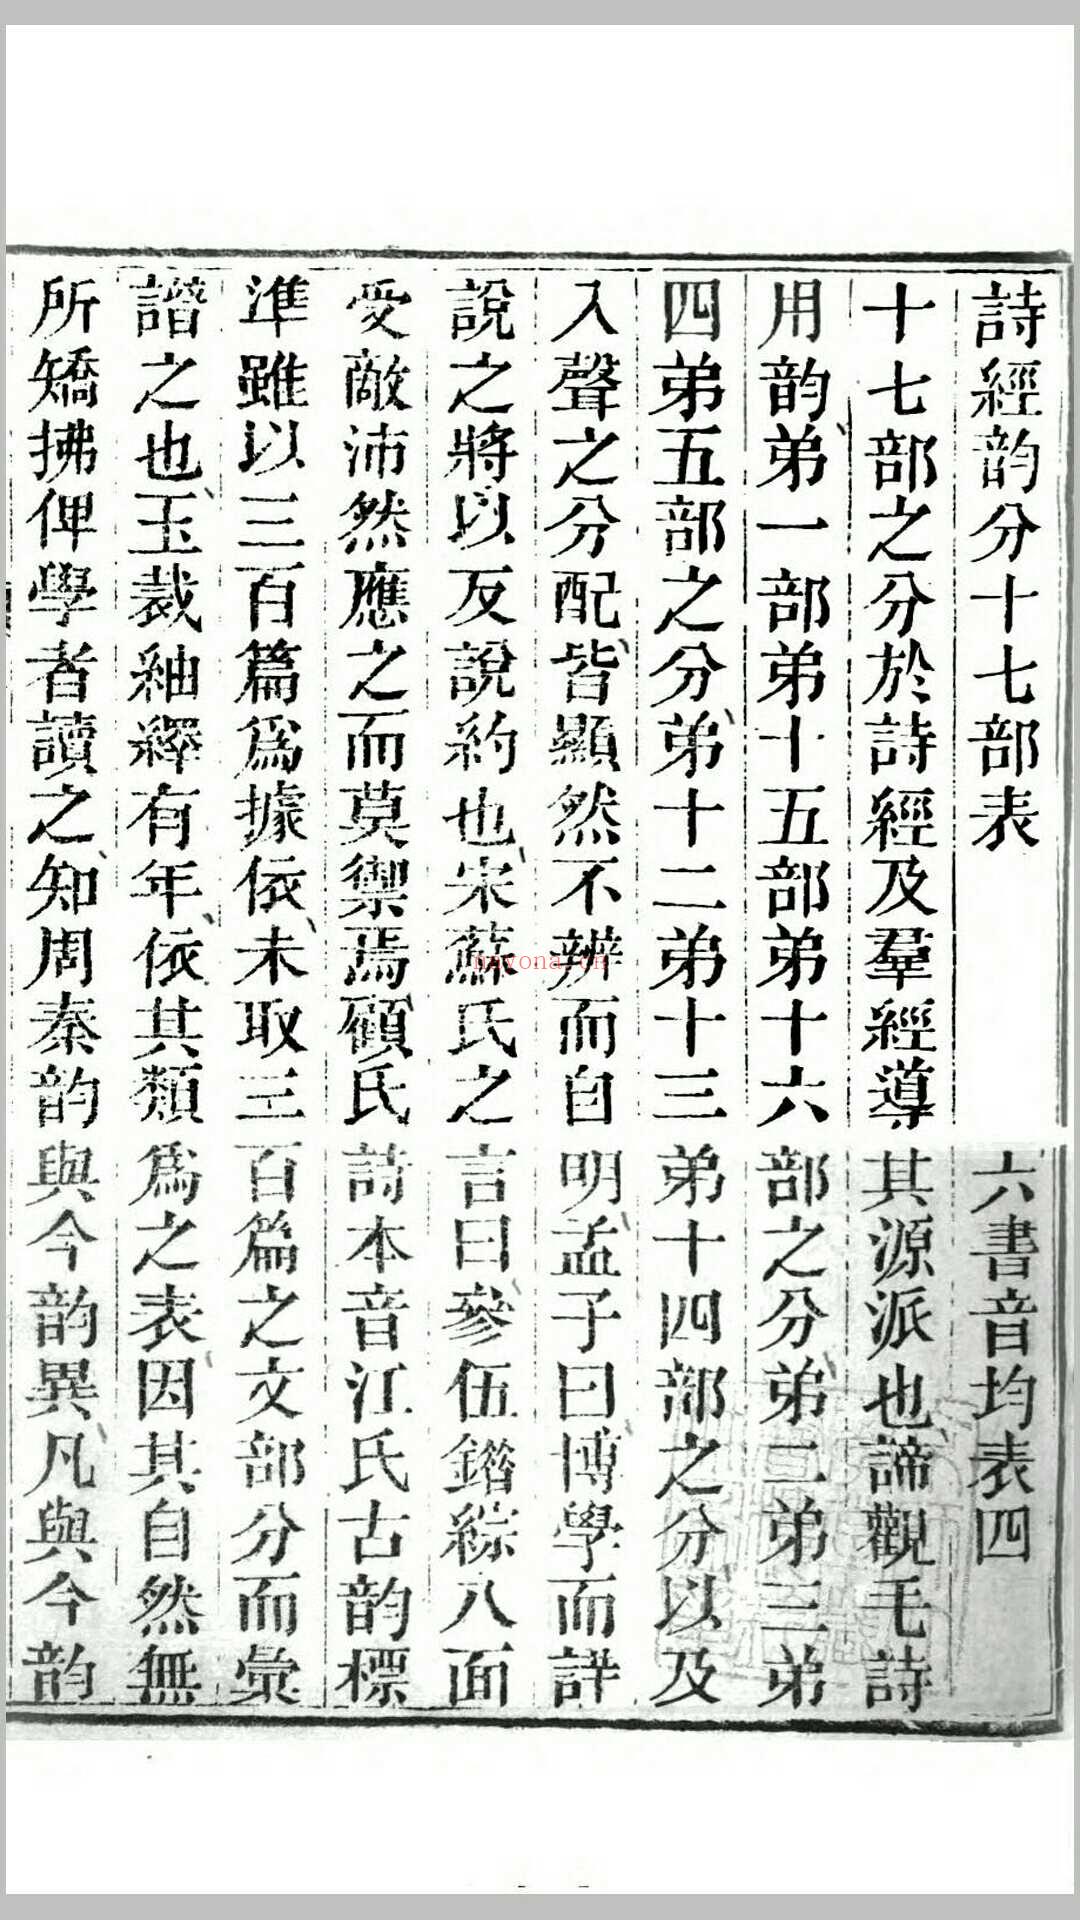 詩經韵分十七部表 六書音均表四
十七部之分於詩經及羣經導其源派也諦觀毛詩
用韵弟一部弟十五部弟十六部之分弟二弟三弟
四弟五部之分弟十二弟十三弟十四部之分以及
入聲之分配皆顯然不辨而自明孟子曰博學而詳
說之將以反說約也宋蘇氏之言曰參伍錯綜八面
受敵沛然應之而莫禦焉顧氏詩本音江氏古韵標
準雖以三百篇爲據依未取三百篇之文部分而彙
譜之也玉裁紬繹有年依其類爲之表因其自然無
所矯拂俾學者讀之知周秦韵與今韵異凡與今韵
nayona.cn